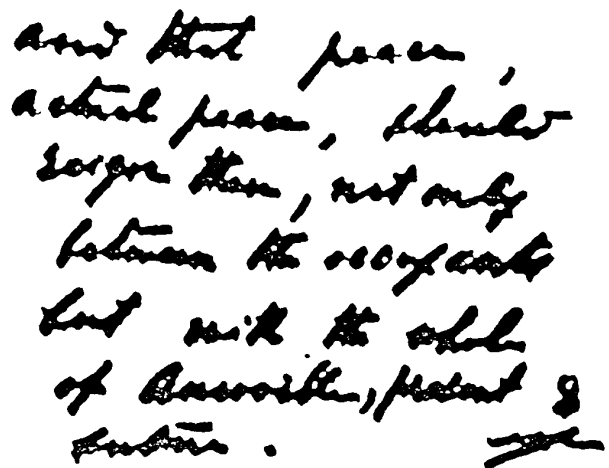 and that peace,
actual peace, should
reign then, not only
between the occupants
but with the whole
of Answorth, present &
future.